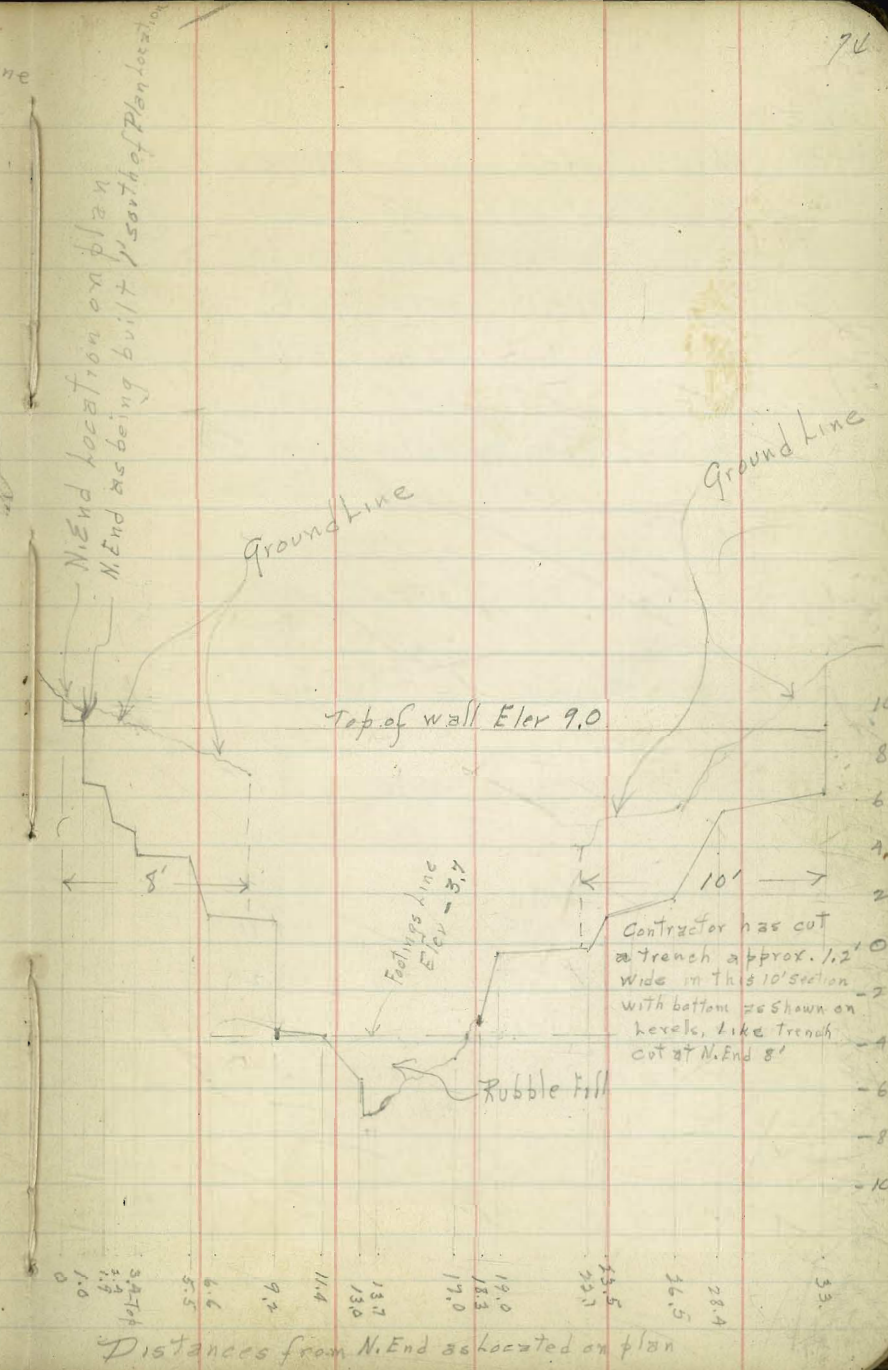 74
ne
N. End Location on plan
N. End as being built 1' south of Plan Location
Ground Line
Ground Line
Top of wall Elev 9.0
10
8
6
4
2
0
-2
-4
-6
-8
-10
8'
10'
Footings Line
Elev - 3.7
Contractor has cut
a trench approx. 1.2'
wide in this 10' section
with bottom as shown on
Levels, Like trench
cut at N. End 8'
Rubble Fill
0
1.0
3.4 Top
5.5
6.6
9.2
11.4
13.0
13.7
17.0
18.3
19.0
26.5
28.4
33.
Distances from N. End as Located on plan